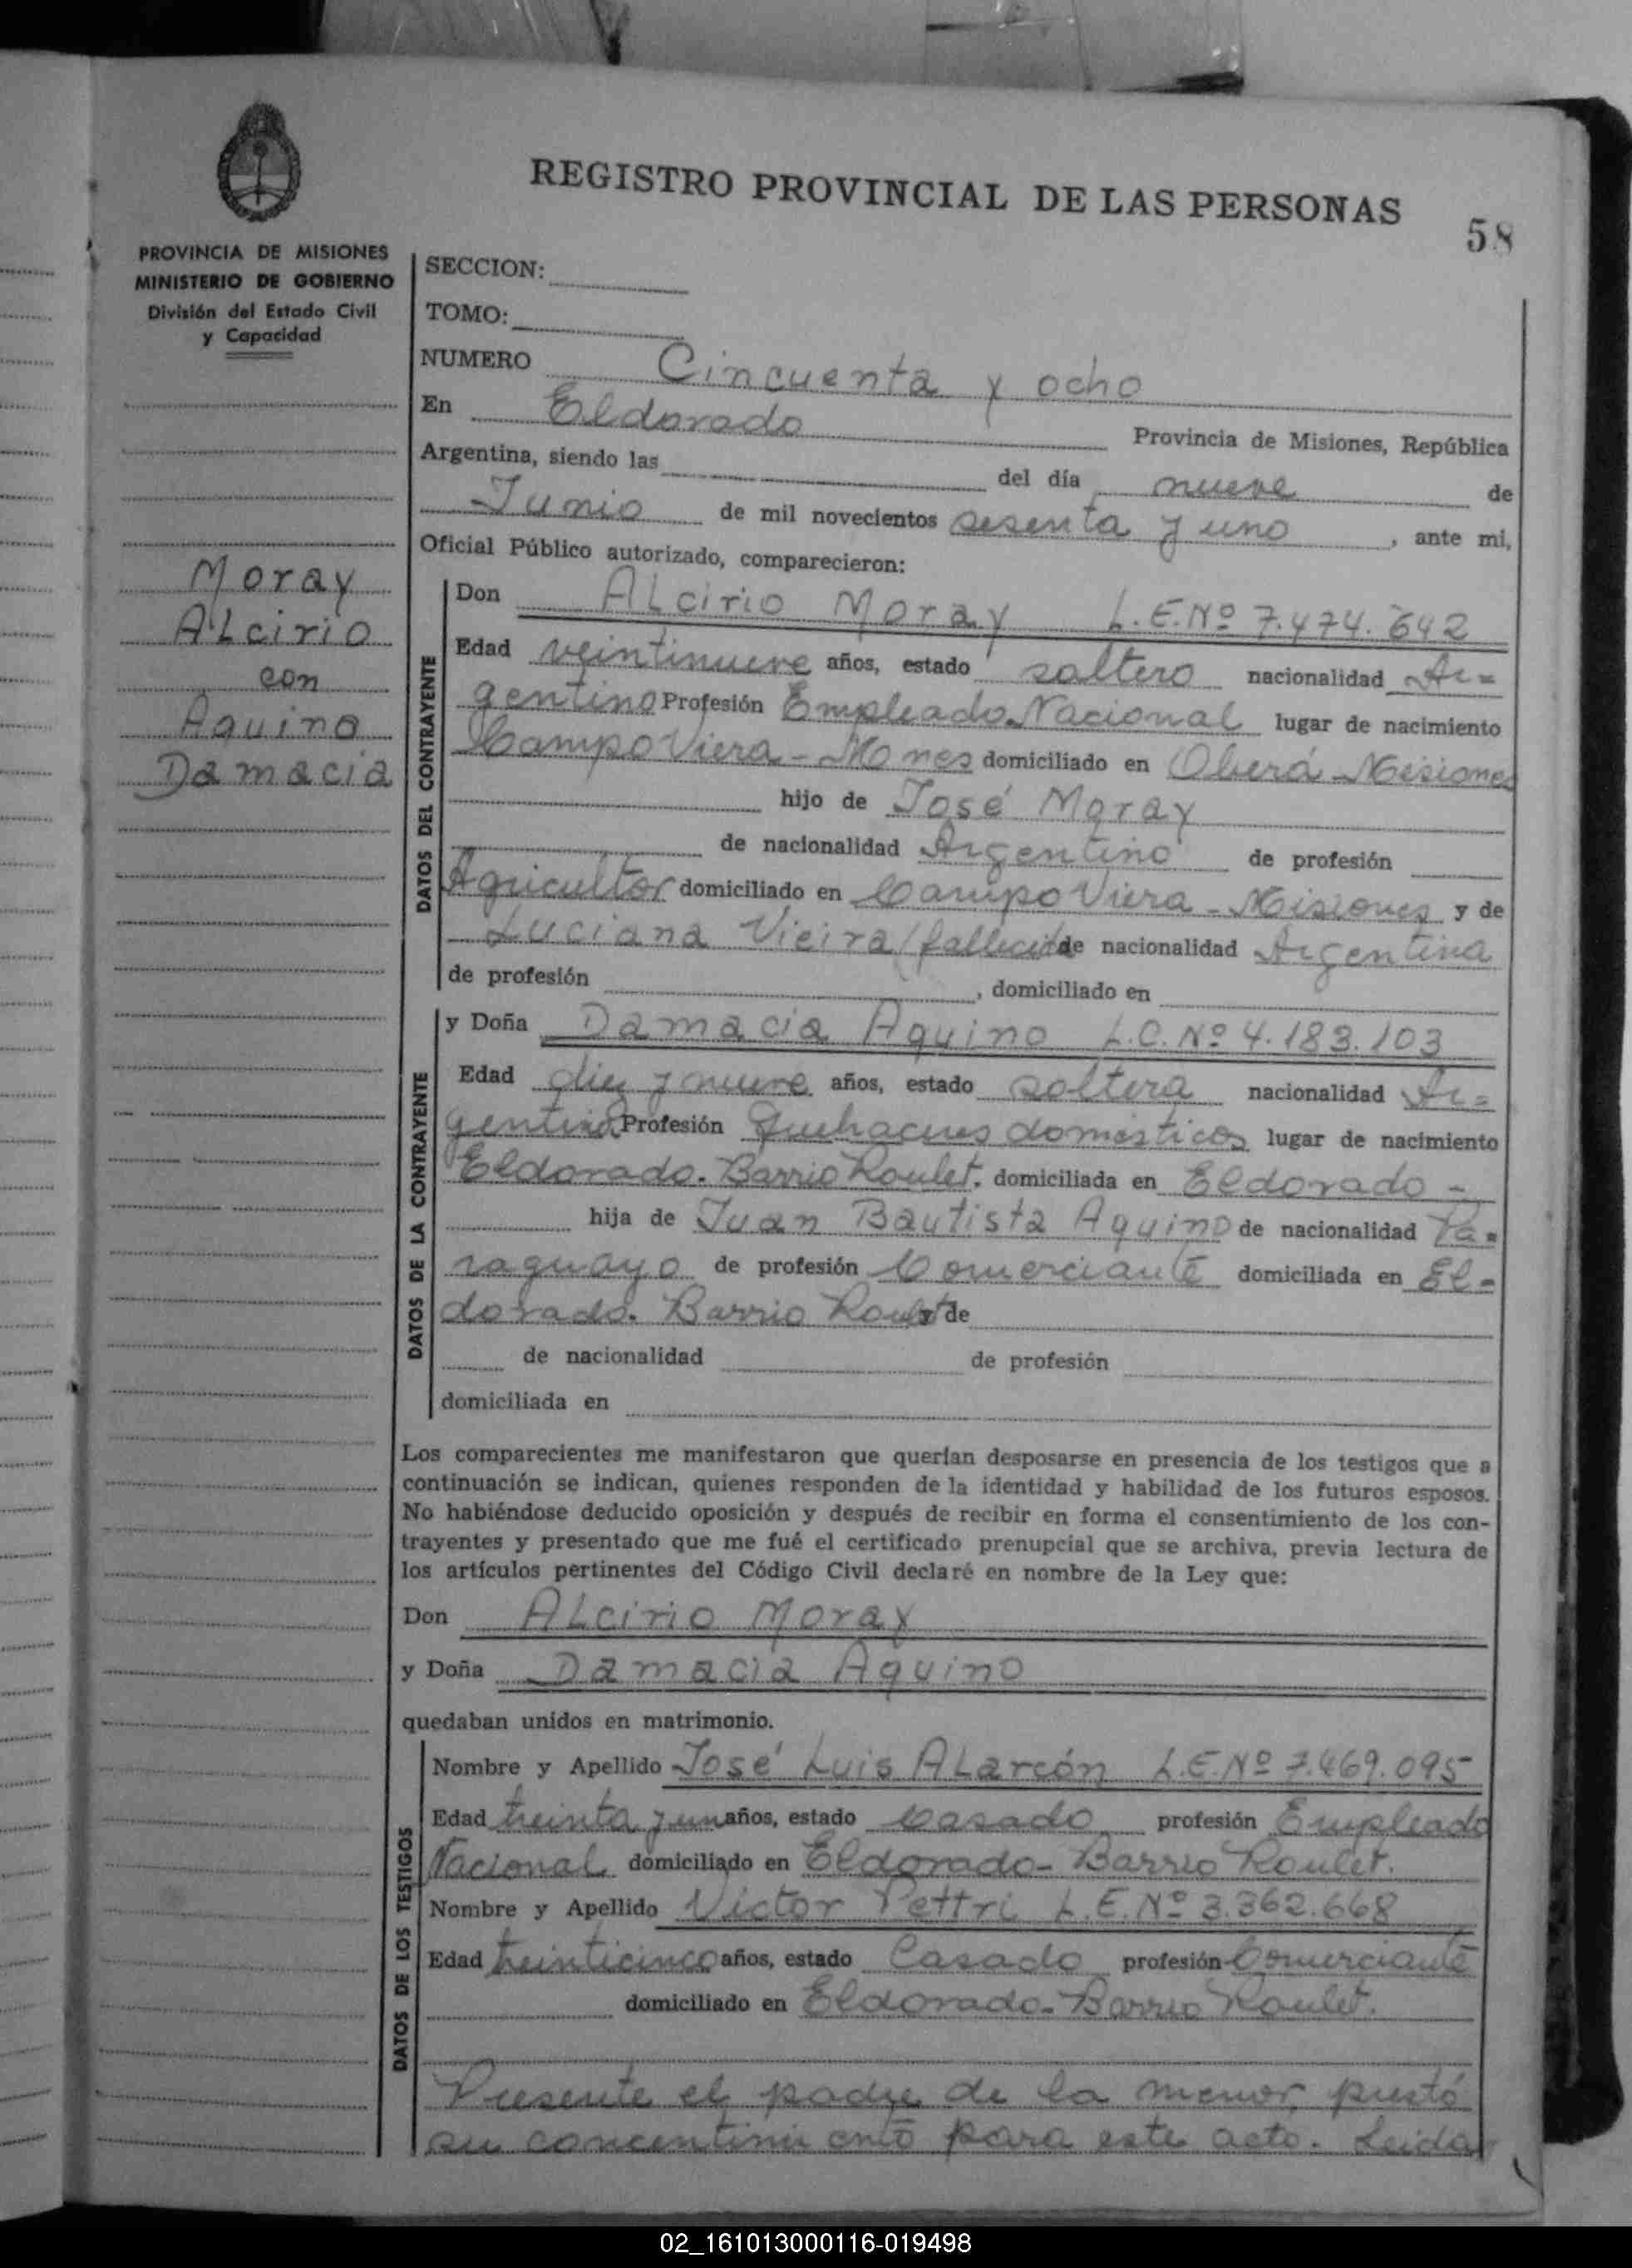 REGISTRO PROVINCIAL DE LAS PERSONAS
58
PROVINCIA DE MISIONES
MINISTERIO DE GOBIERNO
División del Estado Civil
y Capacidad
Moray
ALcirio
con
Aquino
Damacia
SECCION:
TOMO:
NUMERO Cincuenta y ocho
En Eldorado Provincia de Misiones, República
Argentina, siendo las del día nueve de
Junio de mil novecientos sesenta y uno, ante mi,
Oficial Público autorizado, comparecieron:
DATOS DEL CONTRAYENTE
Don ALcirio Moray L.E.Nº 7.474.642
Edad veintinueve años, estado soltero nacionalidad Ar=
gentino Profesión Empleado Nacional lugar de nacimiento
Campo Viera - Mones domiciliado en Oberá - Misiones
hijo de José Moray
de nacionalidad Argentino de profesión
Agricultor domiciliado en Campo Viera - Misiones y de
Luciana Vieira (fallecida de nacionalidad Argentina
de profesión , domiciliado en
DATOS DE LA CONTRAYENTE
y Doña Damacia Aquino L.C.Nº 4.183.103
Edad diez y nueve años, estado soltera nacionalidad Ar=
gentina Profesión Quehaceres domésticos lugar de nacimiento
Eldorado. Barrio Roulet. domiciliada en Eldorado -
hija de Juan Bautista Aquino de nacionalidad Pa=
raguayo de profesión Comerciante domiciliada en El=
dorado. Barrio Roulet y de
de nacionalidad de profesión
domiciliada en
Los comparecientes me manifestaron que querían desposarse en presencia de los testigos que a
continuación se indican, quienes responden de la identidad y habilidad de los futuros esposos.
No habiéndose deducido oposición y después de recibir en forma el consentimiento de los con-
trayentes y presentado que me fué el certificado prenupcial que se archiva, previa lectura de
los artículos pertinentes del Código Civil declaré en nombre de la Ley que:
Don ALcirio Moray
y Doña Damacia Aquino
quedaban unidos en matrimonio.
DATOS DE LOS TESTIGOS
Nombre y Apellido José Luis ALarcón L.E.Nº 7.469.095
Edad treinta y un años, estado Casado profesión Empleado
Nacional domiciliado en Eldorado - Barrio Roulet.
Nombre y Apellido Victor Pettri L.E.Nº 3.362.668
Edad treinticinco años, estado Casado profesión Comerciante
domiciliado en Eldorado - Barrio Roulet.
Presente el padre de la menor, prestó
su concentimiento para este acto. Leida
02_161013000116-019498